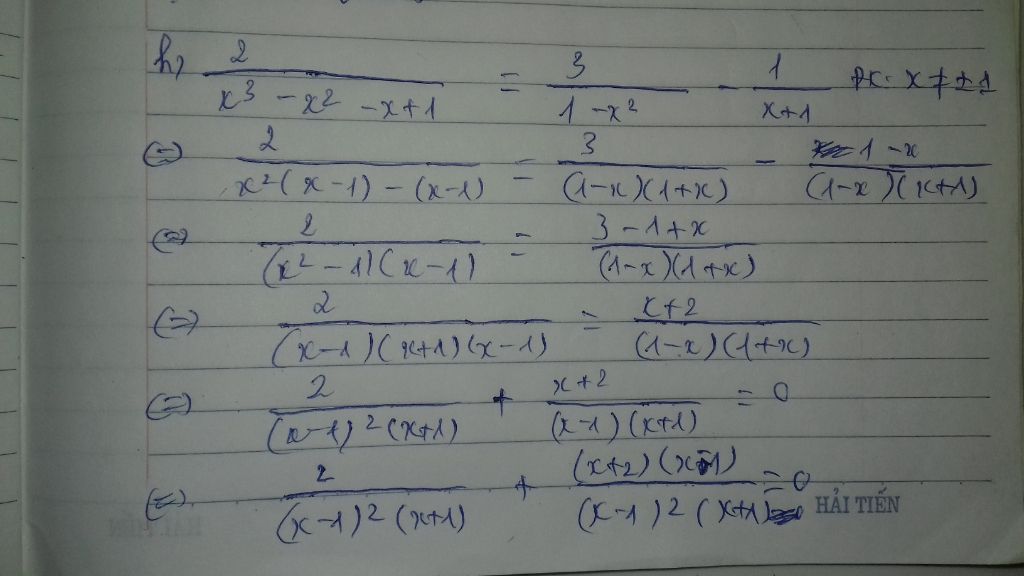 h, 2/(x³ - x² - x + 1) = 3/(1 - x²) - 1/(x+1) ĐK: x ≠ ±1
(=) 2/(x²(x-1) - (x-1)) = 3/((1-x)(1+x)) - (1-x)/((1-x)(x+1))
(=) 2/((x²-1)(x-1)) = (3-1+x)/((1-x)(1+x))
(=) 2/((x-1)(x+1)(x-1)) = (x+2)/((1-x)(1+x))
(=) 2/((x-1)²(x+1)) + (x+2)/((x-1)(x+1)) = 0
(=) 2/((x-1)²(x+1)) + ((x+2)(x-1))/((x-1)²(x+1)) = 0
HẢI TIẾN